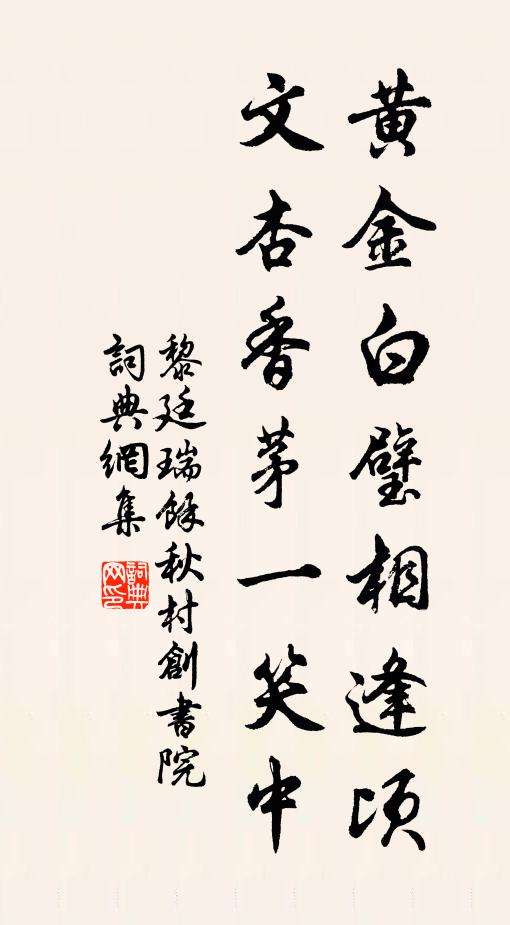 黄金白璧相逢頃
文杏香茅一笑中
黎廷瑞餘秋村創書院
詞典網集
詞典网印